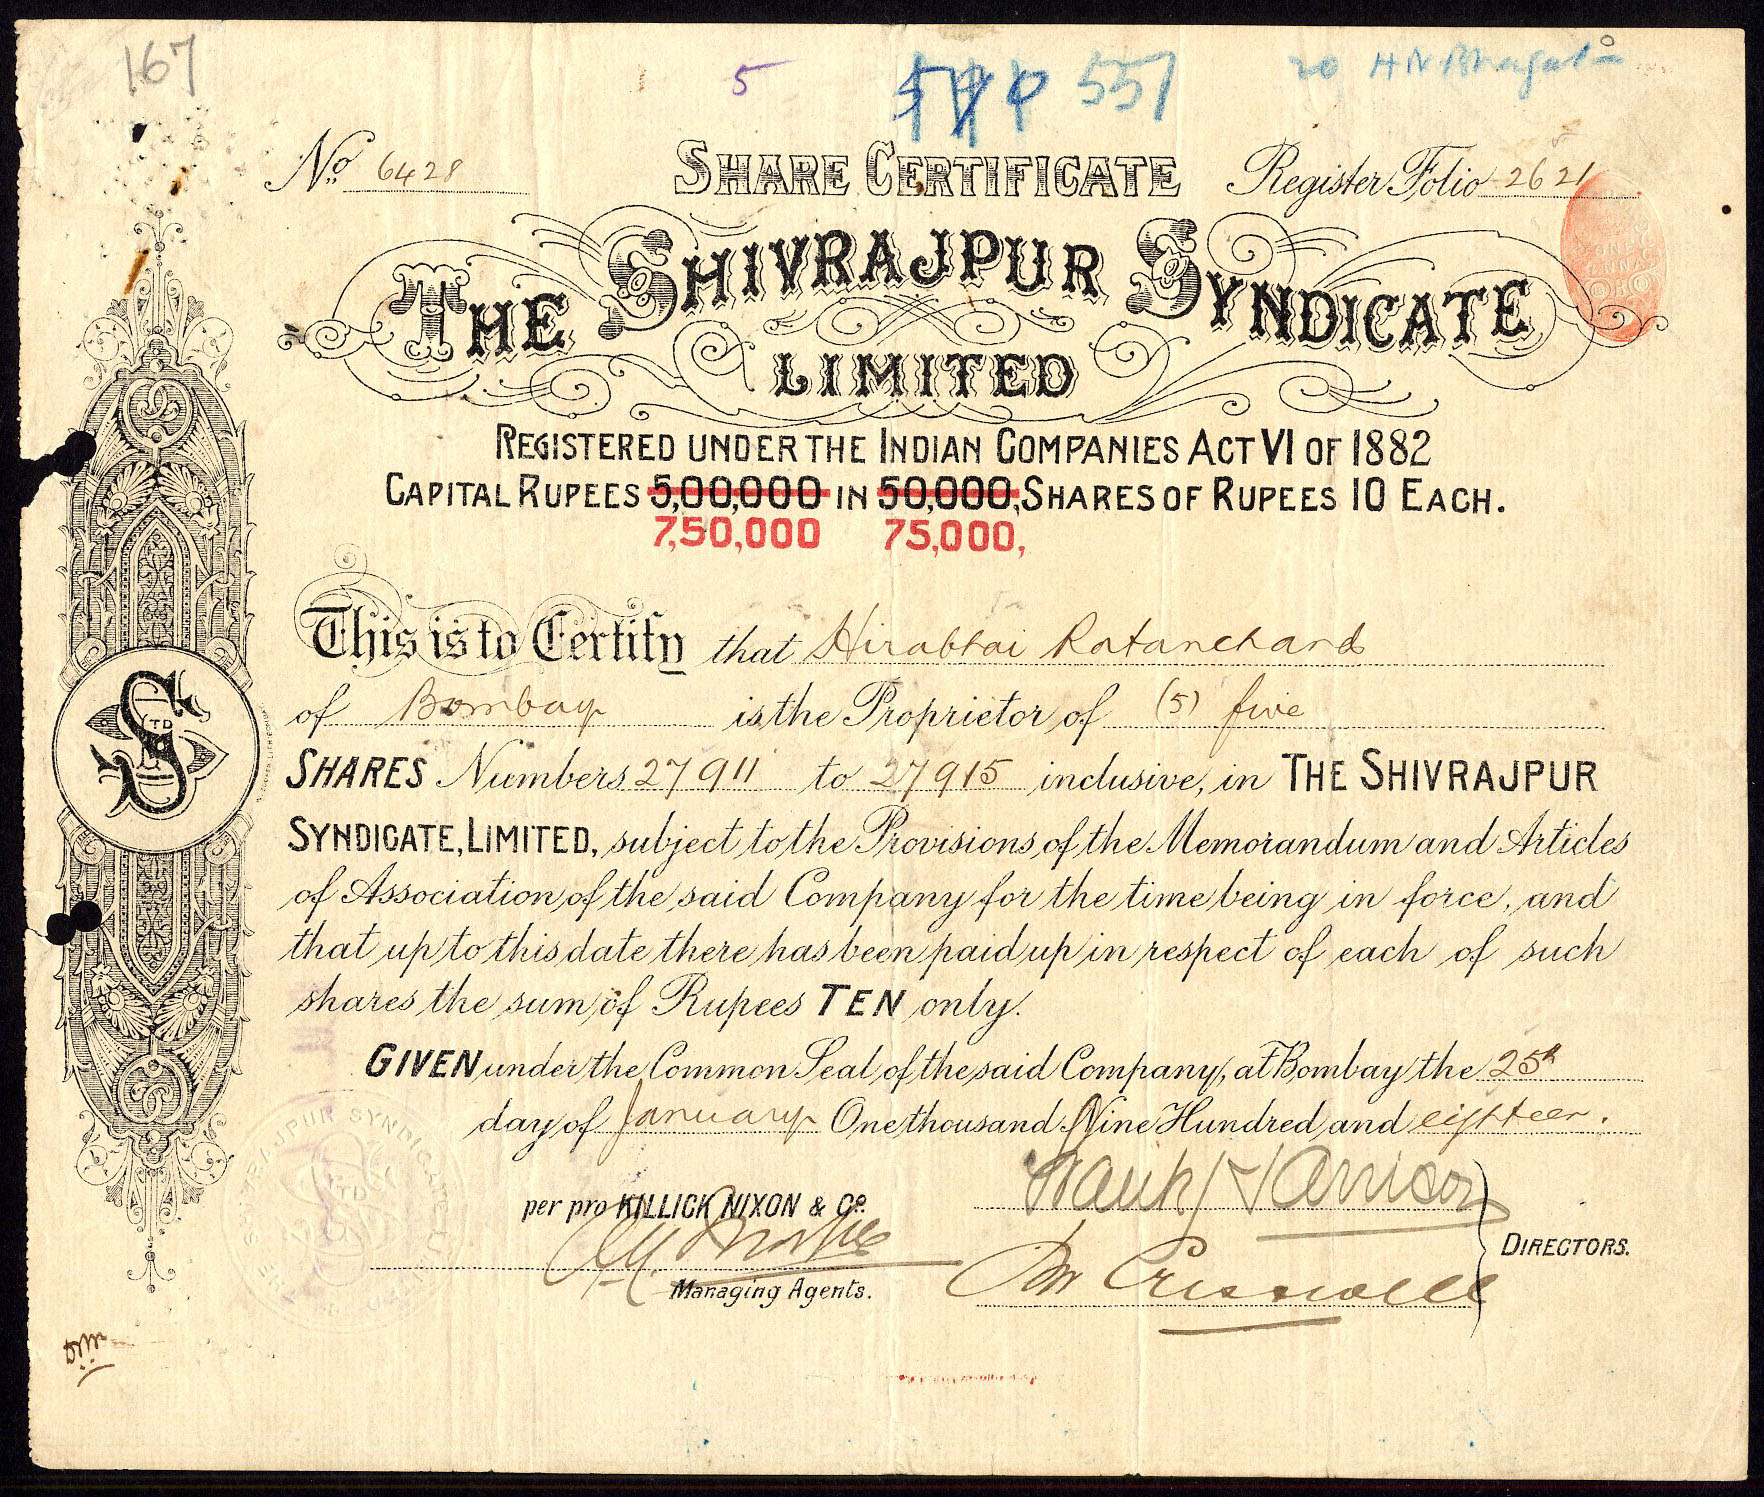 167
5
557
20 H N Bhagat
No. 6428
SHARE CERTIFICATE
Register Folio 2621
THE SHIVRAJPUR SYNDICATE
LIMITED
REGISTERED UNDER THE INDIAN COMPANIES ACT VI OF 1882
CAPITAL RUPEES 5,00,000 IN 50,000, SHARES OF RUPEES 10 EACH.
7,50,000 75,000,
This is to Certify that Hirabhai Ratanchand
of Bombay is the Proprietor of (5) five
SHARES Numbers 27911 to 27915 inclusive, in THE SHIVRAJPUR
SYNDICATE, LIMITED, subject to the Provisions of the Memorandum and Articles
of Association of the said Company for the time being in force, and
that up to this date there has been paid up in respect of each of such
shares the sum of Rupees TEN only.
GIVEN under the Common Seal of the said Company, at Bombay the 25th
day of January One thousand Nine Hundred and eighteen.
per pro KILLICK NIXON & Co.
Managing Agents.
DIRECTORS.
LTD